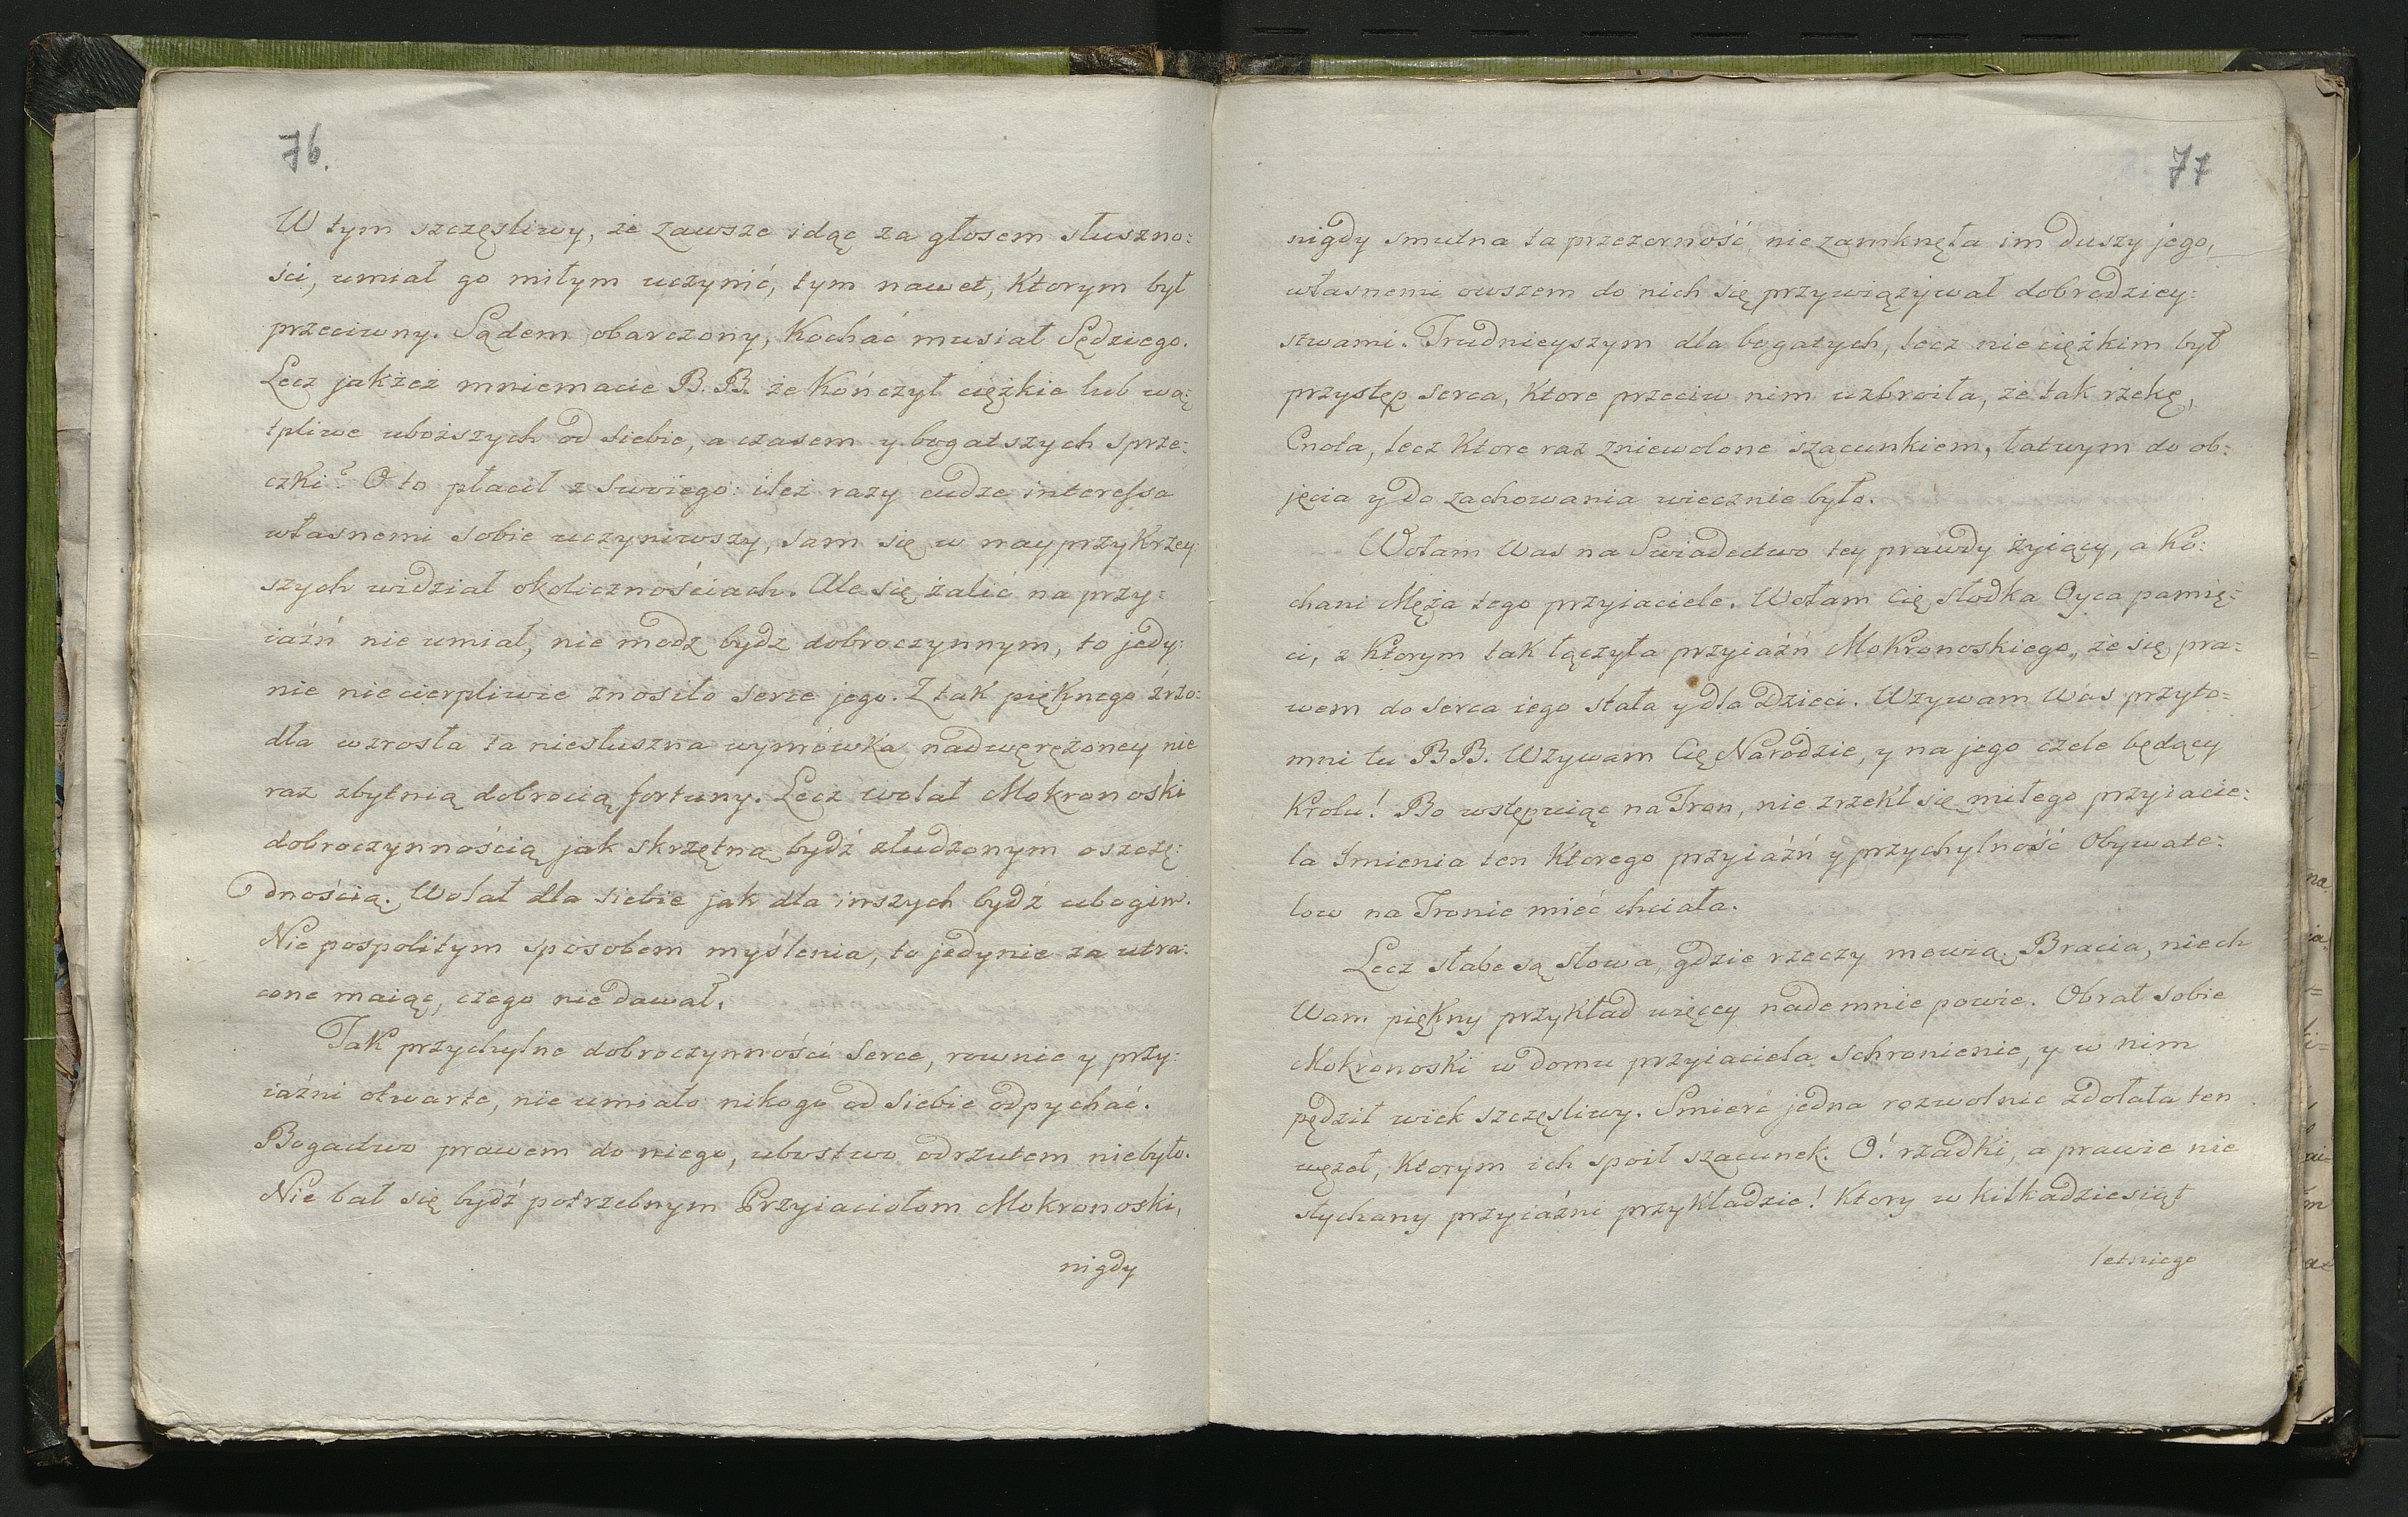 76.
W tym szczęsliwy, że zawsze idąc za głosem słuszno:
ści, umiał go miłym uczynić, tym nawet, Ktorym był
przeciwny. Sądem obarczony, Kochać musiał Sędziego.
Lecz jakżeż mniemacie B. B. że Kończył ciężkie lub wą:
tpliwe uboższych od siebie, a czasem y bogatszych sprze:
czki? O to płacił z swoiego: ileż razy cudze interessa
własnemi sobie uczyniwszy, sam się w nayprzykrzey:
szych widział okolicznościach. Ale się żalić na przy:
iaźń nie umiał, nie modz bydz dobroczynnym, to jedy:
nie niecierpliwie znosiło serce jego. Z tak pięknego źrzo:
dła wzrosła ta niesłuszna wymówka nadwerężoney nie
raz zbytnią dobrocią fortuny. Lecz wolał Mokronoski
dobroczynnością jak skrzętną bydź złudzonym oszczę:
dnością. Wolał dla siebie jak dla inszych bydź ubogim.
Nie pospolitym sposobem myślenia, to jedynie za utra:
cone maiąc, czego nie dawał.
Tak przychylne dobroczynności Serce, rownie y przy:
iaźni otwarte, nie umiało nikogo od siebie odpychać.
Bogactwo prawem do niego, ubostwo odrzutem niebyło.
Nie bał się bydź potrzebnym Przyiaciołom Mokronoski,
nigdy
77
nigdy smutna ta przezorność, nie zamknęła im duszy jego,
własnemi owszem do nich się przywiązywał dobrodziey:
stwami. Trudnieyszym dla bogatych, lecz nie ciężkim był
przystęp serca, Ktore przeciw nim uzbroiła, że tak rzekę,
Cnota, lecz Ktore raz zniewolone szacunkiem, łatwym do ob:
jęcia y do zachowania wiecznie było.
Wołam Was na Swiadectwo tey prawdy żyiący, a Ko:
chani Męża tego przyiaciele. Wołam Cię słodka Oyca pamię:
ci, z Ktorym tak łączyła przyiaźń Mokronoskiego, że się pra:
wem do serca iego stała y dla Dzieci. Wzywam Was przyto:
mni tu BB. Wzywam Cię Narodzie, y na jego czele będący
Krolu! Bo wstępuiąc na Tron, nie zrzekł się miłego przyiacie:
la Imienia ten Ktorego przyiaźń y przychylność Obywate:
low na Tronie mieć chciała.
Lecz słabe są słowa, gdzie rzeczy mowią. Bracia, niech
Wam piękny przykład więcey nademnie powie. Obrał sobie
Mokronoski w domu przyiaciela schronienie, y w nim
pędził wiek szczęsliwy. Smierć jedna rozwolnić zdołała ten
węzeł, Ktorym ich spoił szacunek. O! rzadki, a prawie nie
słychany przyiaźni przykładzie! Ktory w kilkadziesiąt
letniego